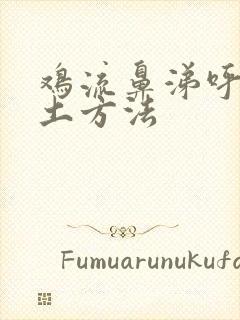 鸡流鼻涕呼
土方法
Fumuarunukufa